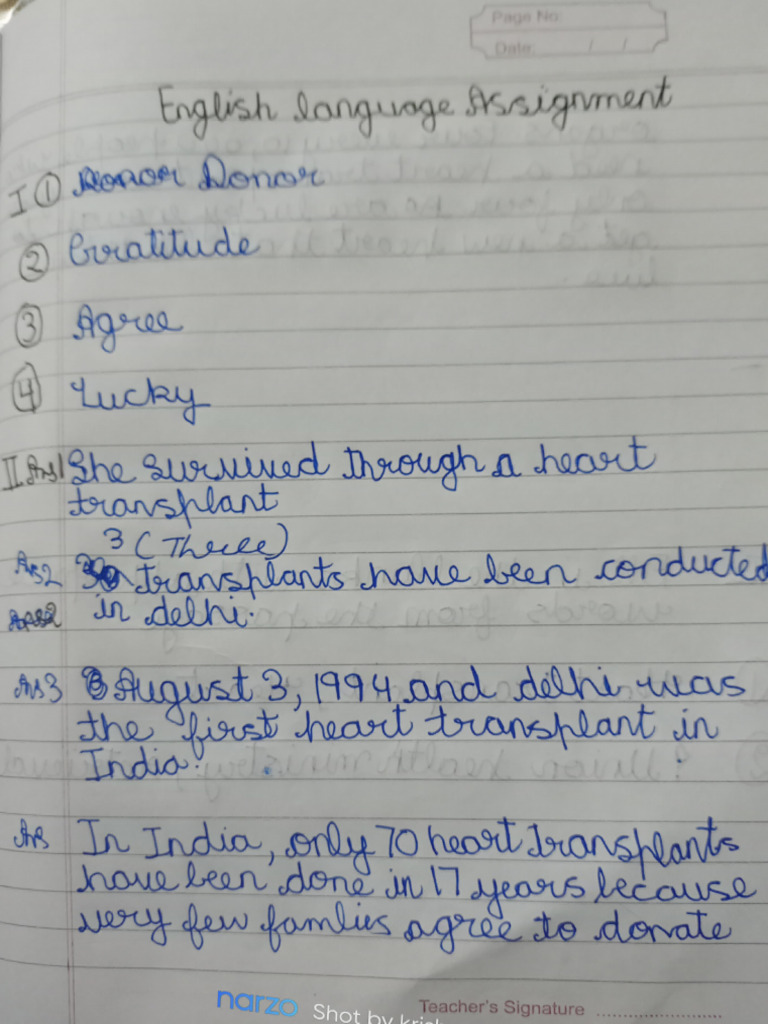 Page No:
Date: / /
English language Assignment
I ① Donor
② Gratitude
③ Agree
④ Lucky
II Ans1 She survived through a heart
transplant
3 (Three)
Ans2 transplants have been conducted
in delhi.
Ans3 August 3, 1994 and delhi was
the first heart transplant in
India.
Ans In India, only 70 heart transplants
have been done in 17 years because
very few famlies agree to donate
narzo Shot by
Teacher's Signature